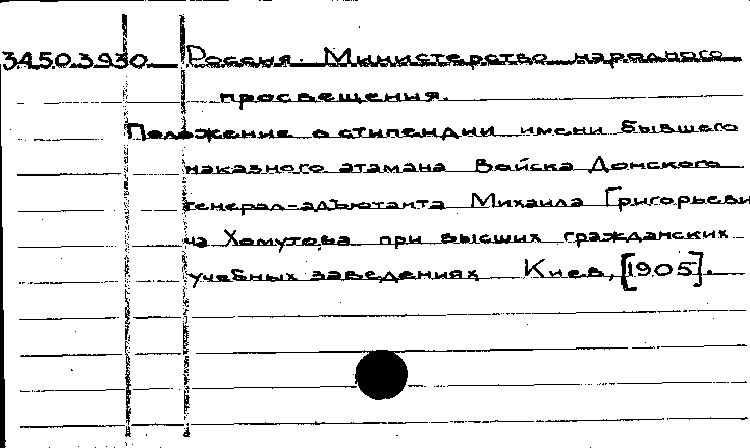 3450.3930 Россия. Министерство народного
просвещения.
Положение о стипендии имени бывшего
наказного атамана Войска Донского
генерал-адъютанта Михаила Григорьеви
ча Хомутова при высших гражданских
учебных заведениях Киев, [1905].